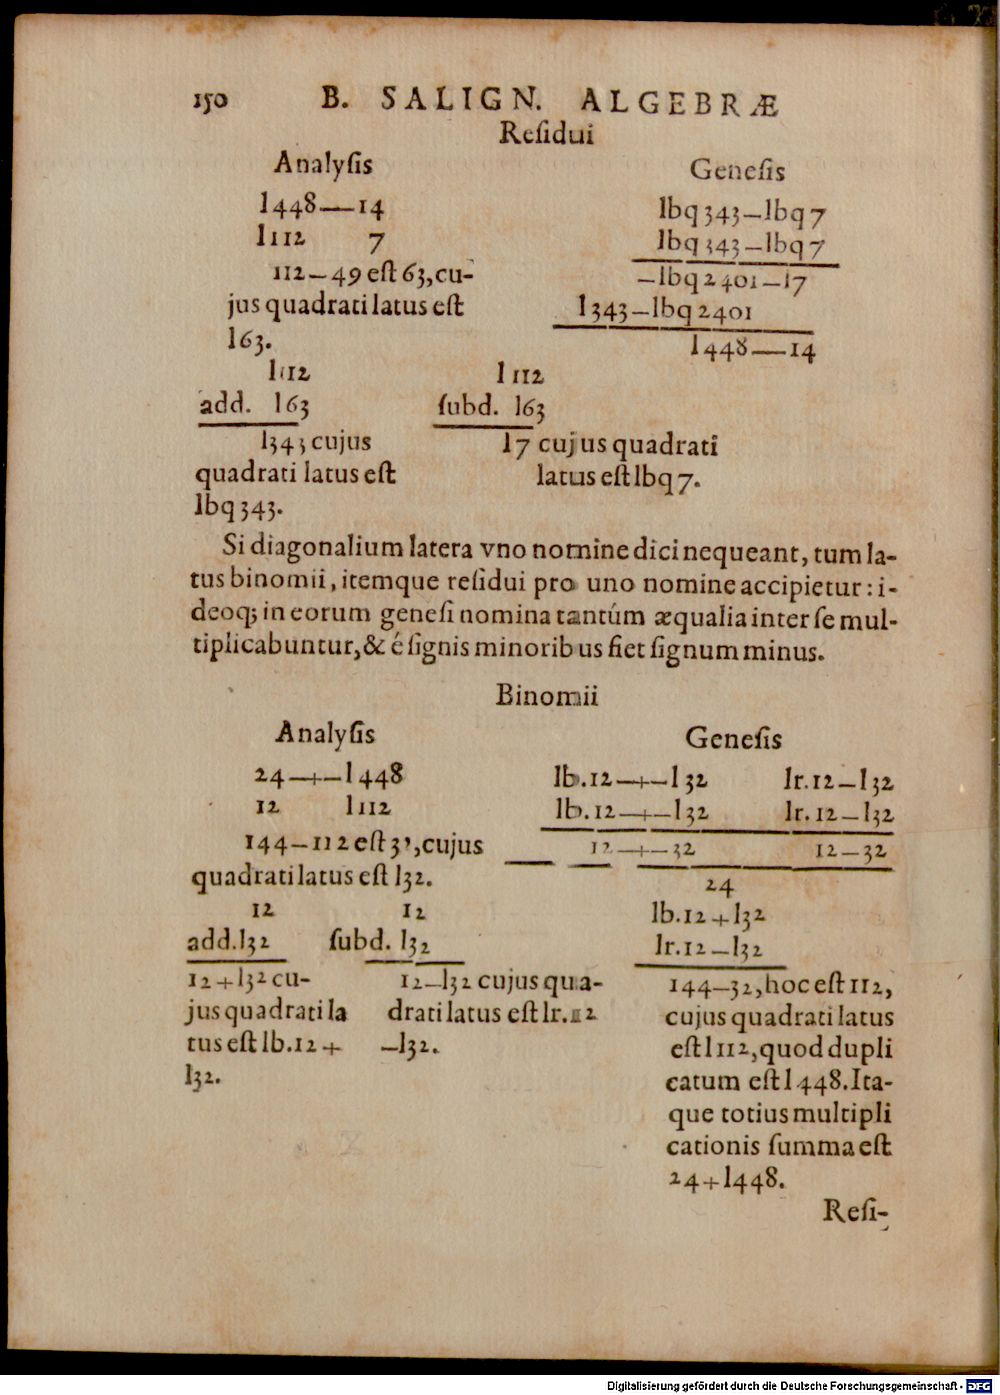 150 B. SALIGN. ALGEBRÆ
Reſidui
Analyſis
l448—14
l112 7
112—49 eſt 63, cu-
jus quadrati latus eſt
l63.
l112
add. l63
l343 cujus
quadrati latus eſt
lbq 343.
l112
ſubd. l63
l7 cujus quadrati
latus eſt lbq 7.
Geneſis
lbq 343—lbq 7
lbq 343—lbq 7
—lbq 2401—l7
l343—lbq 2401
l448—14
Si diagonalium latera vno nomine dici nequeant, tum la-
tus binomii, itemque reſidui pro uno nomine accipietur: i-
deoq; in eorum geneſi nomina tantúm æqualia inter ſe mul-
tiplicabuntur, & é ſignis minoribus fiet ſignum minus.
Binomii
Analyſis
24—+—l448
12 l112
144—112 eſt , cujus
quadrati latus eſt l32.
12
add. l32
12+l32 cu-
jus quadrati la
tus eſt lb.12+
l32.
12
ſubd. l32
12—l32 cujus qua-
drati latus eſt lr.12
—l32.
Geneſis
lb.12—+—l32 lr.12—l32
lb.12—+—l32 lr.12—l32
12—+—32 12—32
24
lb.12+l32
lr.12—l32
144—32, hoc eſt 112,
cujus quadrati latus
eſt l112, quod dupli
catum eſt l448. Ita-
que totius multipli
cationis ſumma eſt
24+l448.
Reſi-
Digitalisierung gefördert durch die Deutsche Forschungsgemeinschaft - DFG